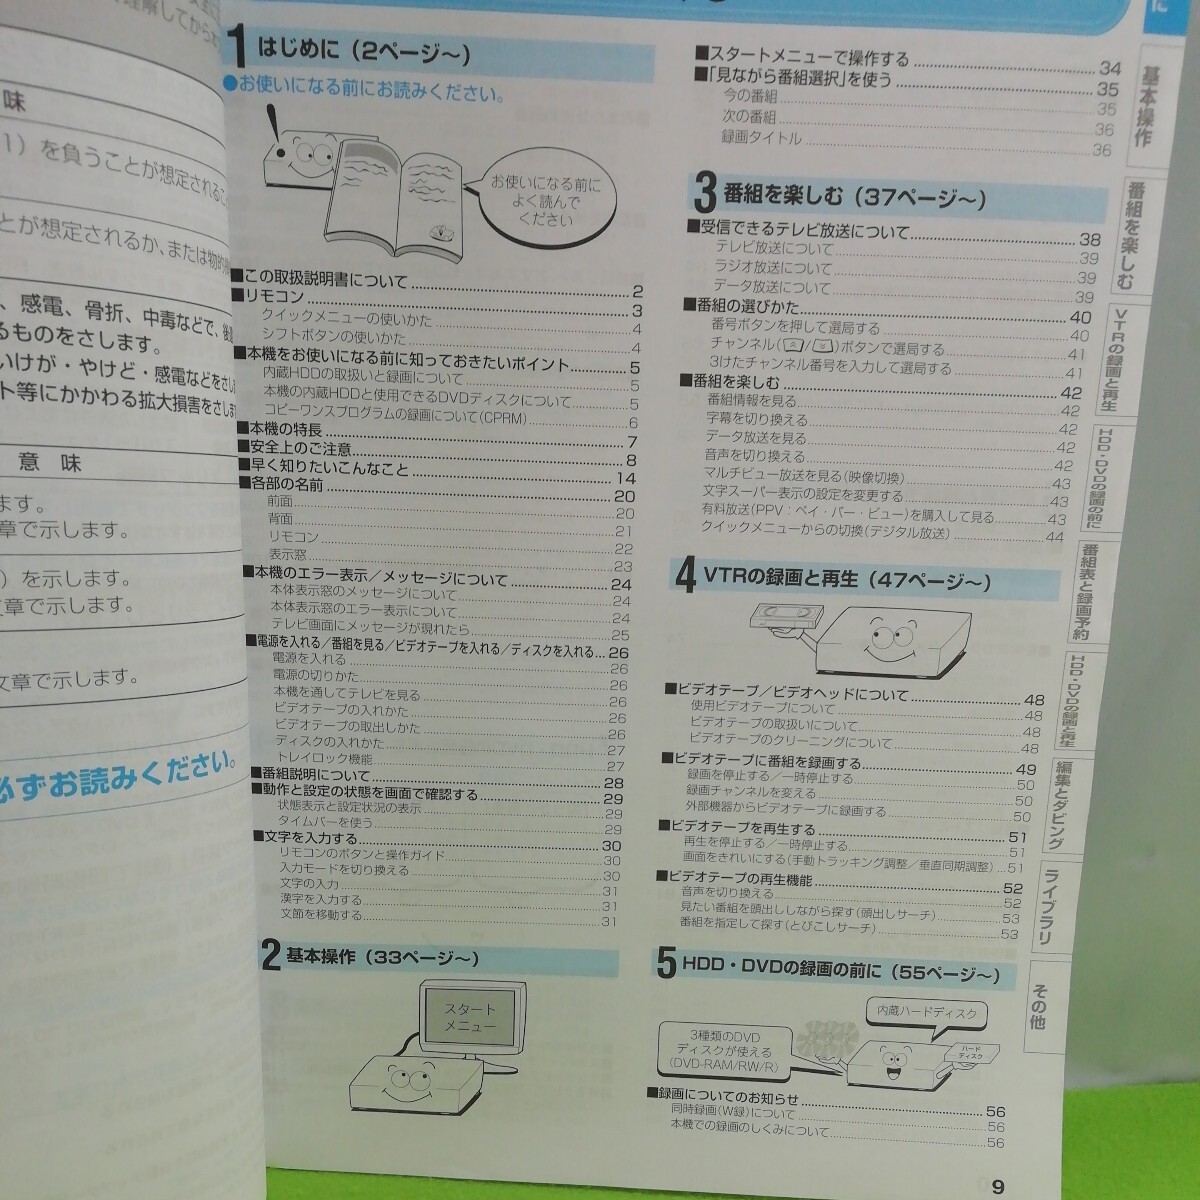 理解してから本
味
1）を負うことが想定されるこ
とが想定されるか、または物的
、感電、骨折、中毒などで、後遺
るものをさします。
いけが・やけど・感電などをさし
ト等にかかわる拡大損害をさしま
意 味
ます。
章で示します。
）を示します。
文章で示します。
文章で示します。
必ずお読みください。
1 はじめに（2ページ〜）
●お使いになる前にお読みください。
お使いになる前に
よく読んで
ください
■この取扱説明書について 2
■リモコン 3
クイックメニューの使いかた 4
シフトボタンの使いかた 4
■本機をお使いになる前に知っておきたいポイント 5
内蔵HDDの取扱いと録画について 5
本機の内蔵HDDと使用できるDVDディスクについて 5
コピーワンスプログラムの録画について(CPRM) 6
■本機の特長 7
■安全上のご注意 8
■早く知りたいこんなこと 14
■各部の名前 20
前面 20
背面 21
リモコン 22
表示窓 23
■本機のエラー表示／メッセージについて 24
本体表示窓のメッセージについて 24
本体表示窓のエラー表示について 24
テレビ画面にメッセージが現れたら 25
■電源を入れる／番組を見る／ビデオテープを入れる／ディスクを入れる 26
電源を入れる 26
電源の切りかた 26
本機を通してテレビを見る 26
ビデオテープの入れかた 26
ビデオテープの取出しかた 26
ディスクの入れかた 27
トレイロック機能 27
■番組説明について 28
■動作と設定の状態を画面で確認する 29
状態表示と設定状況の表示 29
タイムバーを使う 29
■文字を入力する 30
リモコンのボタンと操作ガイド 30
入力モードを切り換える 30
文字の入力 31
漢字を入力する 31
文節を移動する 31
2 基本操作（33ページ〜）
スタート
メニュー
■スタートメニューで操作する 34
■「見ながら番組選択」を使う 35
今の番組 35
次の番組 36
録画タイトル 36
3 番組を楽しむ（37ページ〜）
■受信できるテレビ放送について 38
テレビ放送について 39
ラジオ放送について 39
データ放送について 39
■番組の選びかた 40
番号ボタンを押して選局する 40
チャンネル(︿/﹀)ボタンで選局する 41
3けたチャンネル番号を入力して選局する 41
■番組を楽しむ 42
番組情報を見る 42
字幕を切り換える 42
データ放送を見る 42
音声を切り換える 42
マルチビュー放送を見る(映像切換) 43
文字スーパー表示の設定を変更する 43
有料放送(PPV：ペイ・パー・ビュー)を購入して見る 43
クイックメニューからの切換(デジタル放送) 44
4 VTRの録画と再生（47ページ〜）
■ビデオテープ／ビデオヘッドについて 48
使用ビデオテープについて 48
ビデオテープの取扱いについて 48
ビデオテープのクリーニングについて 48
■ビデオテープに番組を録画する 49
録画を停止する／一時停止する 50
録画チャンネルを変える 50
外部機器からビデオテープに録画する 50
■ビデオテープを再生する 51
再生を停止する／一時停止する 51
画面をきれいにする(手動トラッキング調整／垂直同期調整) 51
■ビデオテープの再生機能 52
音声を切り換える 52
見たい番組を頭出ししながら探す(頭出しサーチ) 53
番組を指定して探す(とびこしサーチ) 53
5 HDD・DVDの録画の前に（55ページ〜）
3種類のDVD
ディスクが使える
(DVD-RAM/RW/R)
内蔵ハードディスク
ハード
ディスク
■録画についてのお知らせ 56
同時録画(W録)について 56
本機での録画のしくみについて 56
9
に
基本操作
番組を楽しむ
VTRの録画と再生
HDD・DVDの録画の前に
番組表と録画予約
HDD・DVDの録画と再生
編集とダビング
ライブラリ
その他